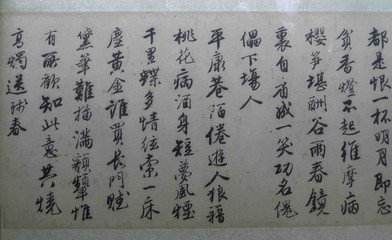 都是恨一杯明月即忘
貧香燈不起維摩病
櫻笋堪酬谷雨春鏡
裏自看成一笑功名傀
儡下場人
平康巷陌倦遊人狼藉
桃花病酒身短夢風煙
千里蝶多情弦索一床
塵黃金誰買長門賦
黛筆難描滿額顰惟
有所歡知此意共燒
高燭送殘春